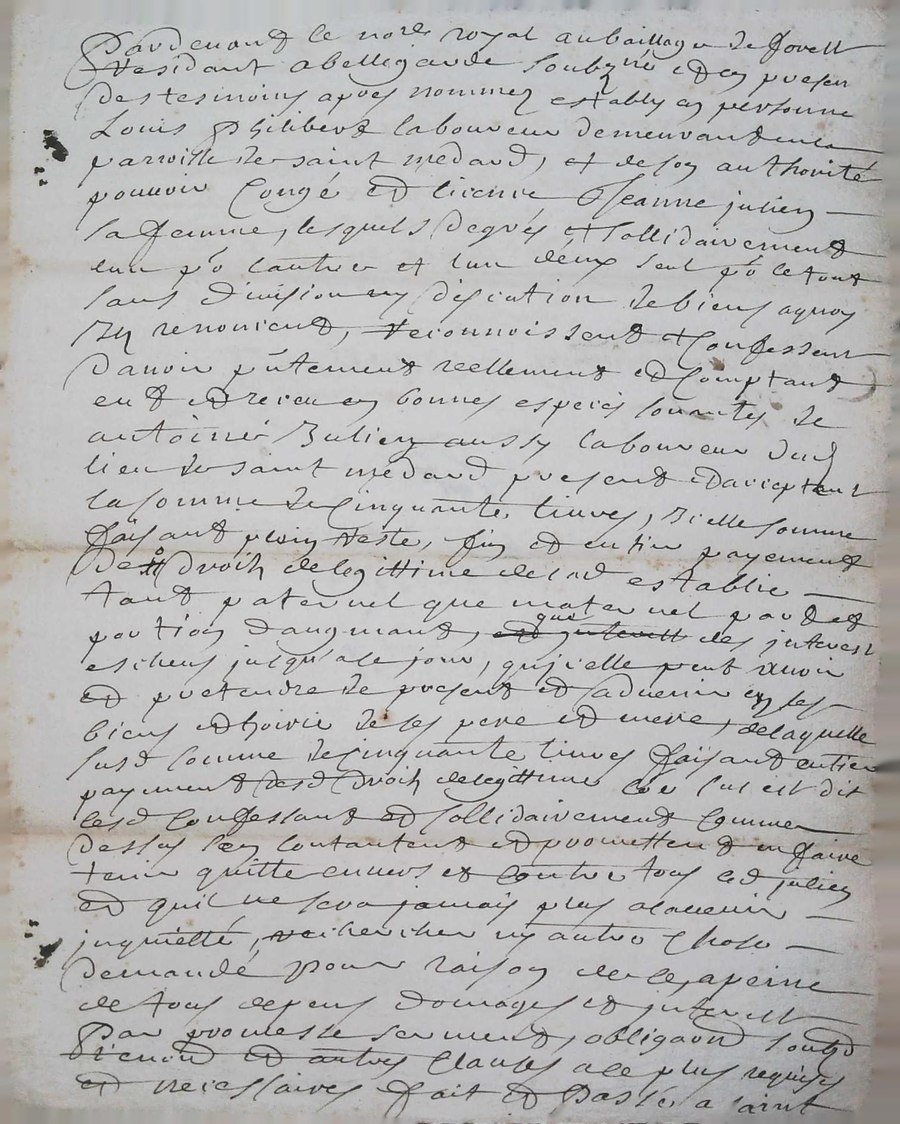 Pardevant le nore royal au bailliage de forest
residant a bellegarde soubzne et en presen
des tesmoins apres nommez estably en personne
Louis Philibert laboureur demeurant en la
parroisse de saint medard, et de son authorité
pouvoir Congé et licence Jeanne julien
sa femme, lesquels degrés et sollidairement
lun po lautre et lun deux seul po le tout
sans division ny discution de biens a quoy
ilz renoncent, reconnoissent et Confessent
d'avoir pntement reellement et Comptant
eut et receu en bonnes especes sonantes de
antoine Julien aussy laboureur dud
lieu de saint medard present et acceptant
la somme de Cinquante livres, Icelle somme
faisant pour reste, fin et entier payement
des droitz de legittime de lad establie
tant paternel que maternel part et
portion daugmant, que des interest
escheus jusqu'a ce jour, qu'icelle peut avoir
et pretendre de present et a ladvenir en les
biens et hoirie de ses pere et mere, de laquelle
susd somme de Cinquante livres faisant entier
payement desd droitz de legittime Coe sus est dit
lesd Confessant et sollidairement Comme
dessus sen contantent et promettent en faire
tenir quitte envers et Contre tous led julien
et quil ne sera jamais plus aladvenir
inquietté, rechercher ny autre Chose
demandé pour raison de ce a peine
de tous depens domages et interest
Par promesse serment, obligaon soubz
et autres Clauses a ce plus requises
et necessaires fait et Passé, a saint